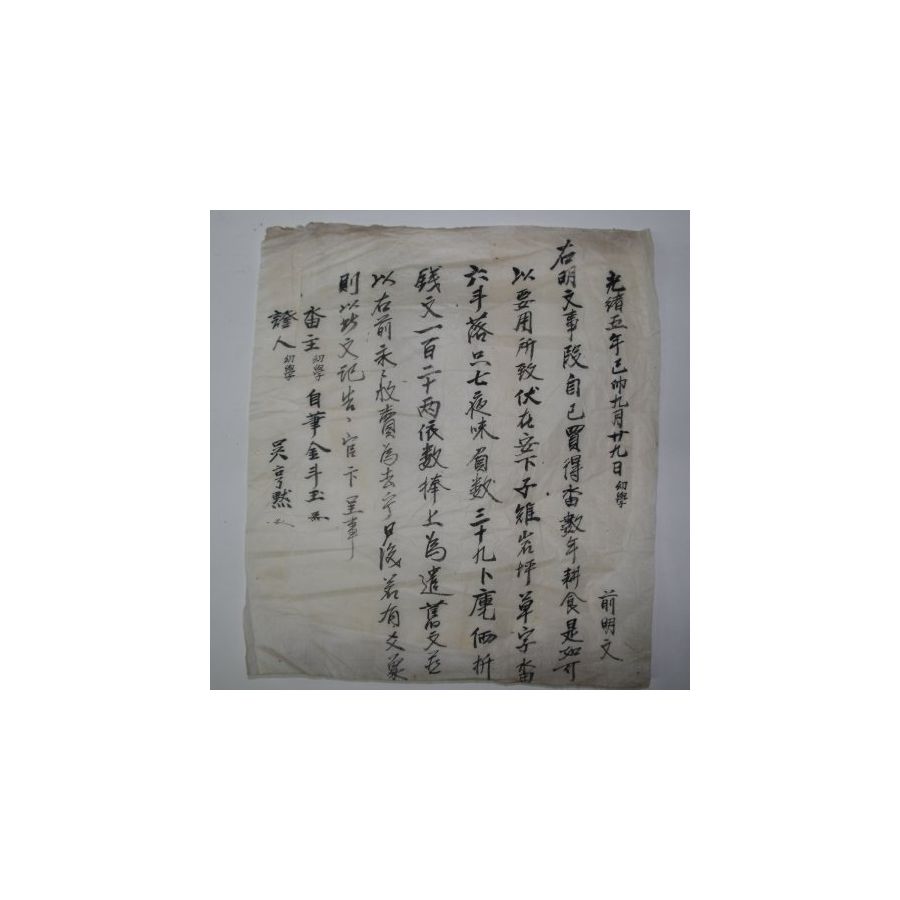 光緒五年己卯九月廿九日 幼學 前明文
右明文事段自己買得畓數年耕食是如可
以要用所致伏在安下子雉岩坪草字畓
六斗落只七夜味負數三十九卜庫価折
錢文一百二十両依數捧上為遣舊文並
以右前永永放賣為去乎日後若有爻象
則以此文記告官卞呈事
畓主 幼學 自華金斗玉
證人 幼學 吳亨黙